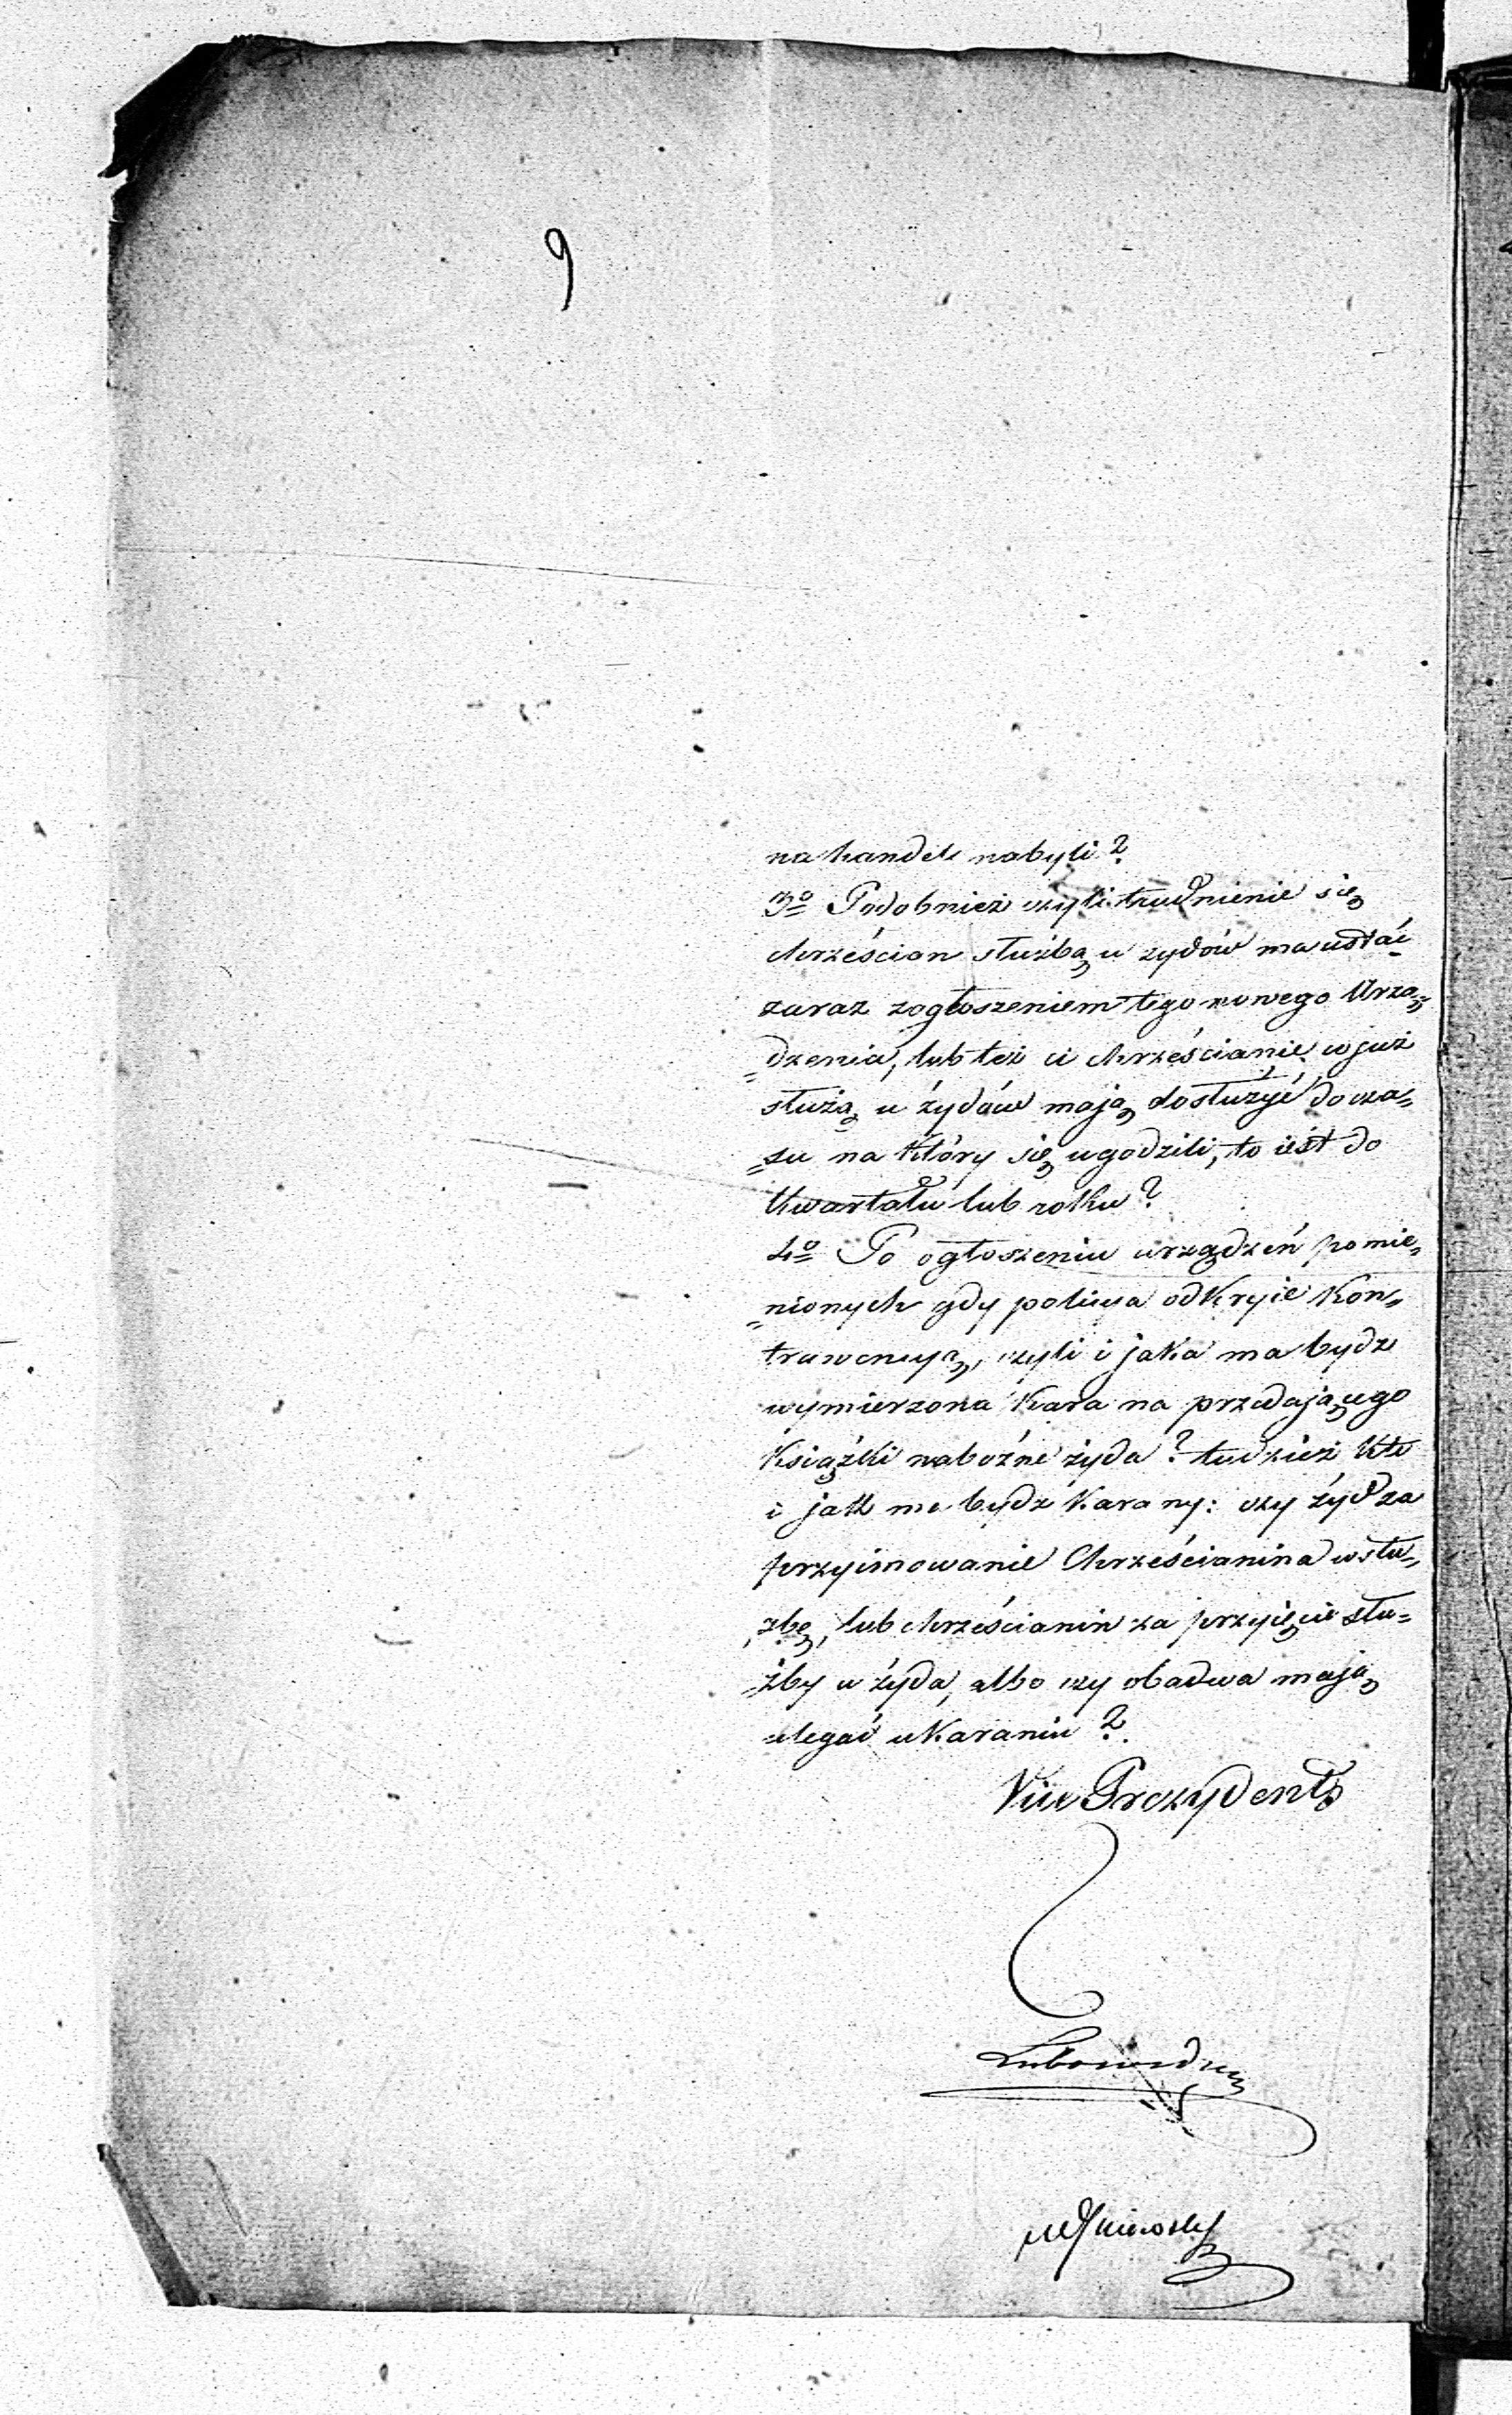 9
na handel nabyli?
3o Podobnież czyli trudnienie się
chrześcian służbą u żydów ma ustać
zaraz z ogłoszeniem tego nowego Urzą„
„dzenia, lub też ci chrześcianie co już
służą u żydów mają dosłużyć do cza„
„su na który się ugodzili, to iest do
kwartału lub roku?
4o Po ogłoszeniu urządzeń pomie„
„nionych gdy policya odkryie kon„
trawencyą, czyli i jaka ma bydz
wymierzona kara na przedającego
książki nabożne żyda? tudzież kto
i jak ma bydz karany: czy żyd za
przyimowanie Chrześcianina w słu„
„żbę, lub chrześcianin za przyięcie słu„
„żby u żyda, albo czy obadwa mają
ulegać ukaraniu?
Vice Prezydent
Lubowidzki